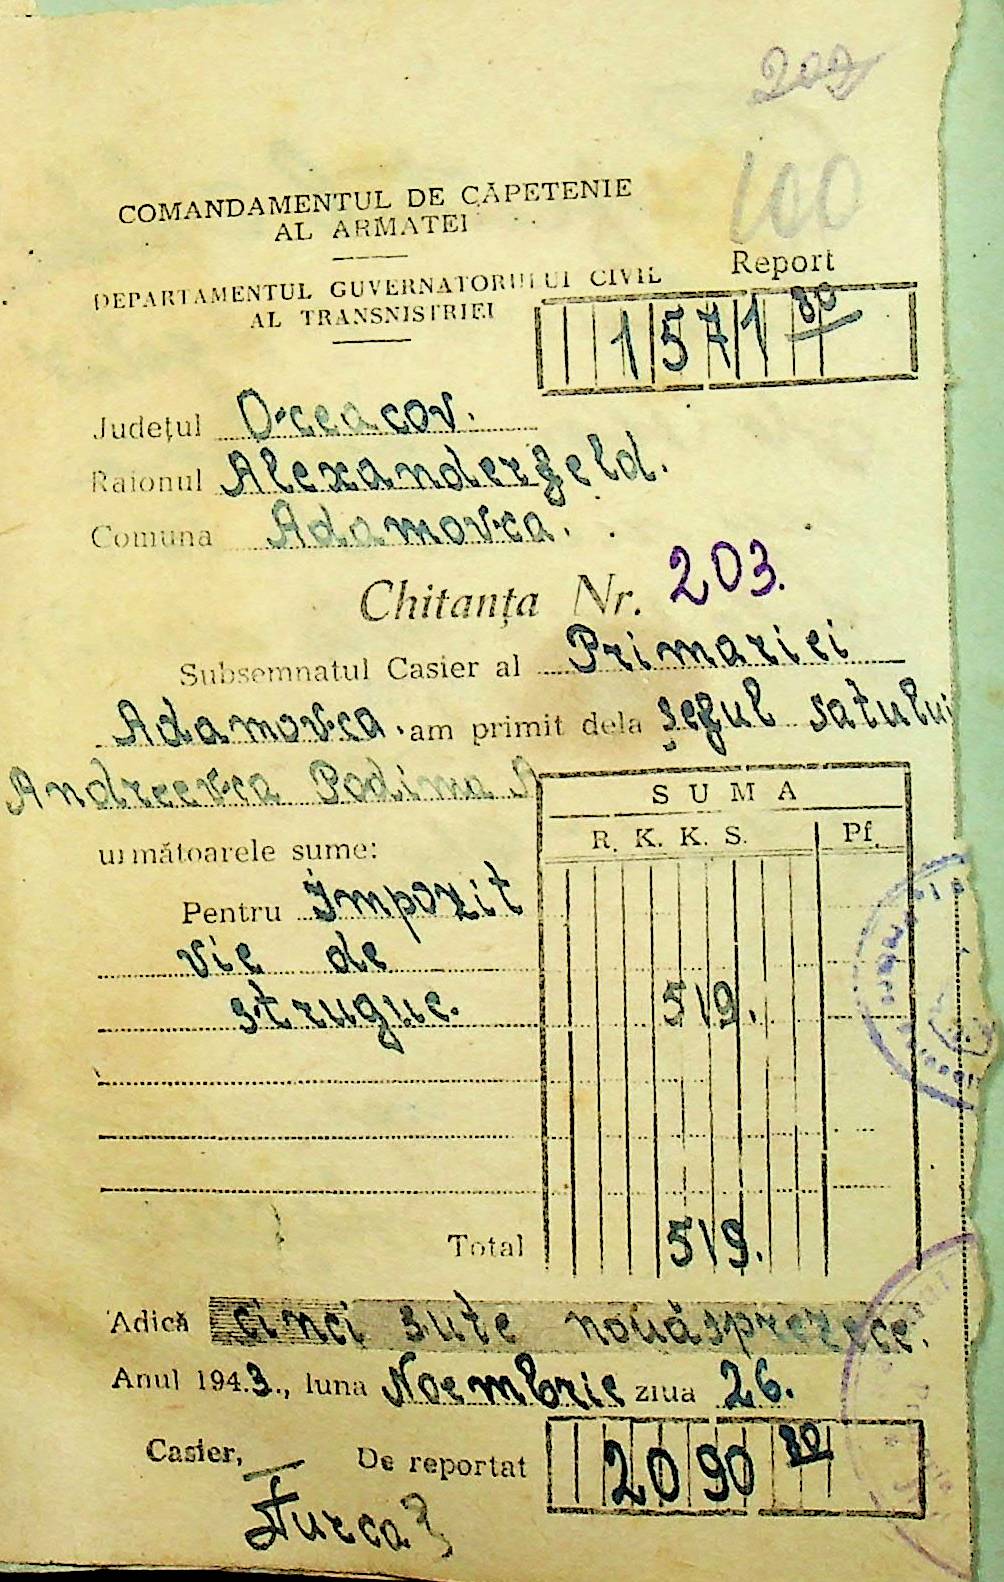 209
100
COMANDAMENTUL DE CĂPETENIE
AL ARMATEI
DEPARTAMENTUL GUVERNATORULUI CIVIL
AL TRANSNISTRIEI
Report
1571 80
Județul Oceacov.
Raionul Alexanderfeld.
Comuna Adamovca.
Chitanța Nr. 203.
Subsemnatul Casier al Primariei
Adamovca. am primit dela șeful satului
Andreevca Podima A
SUMA
următoarele sume:
R. K. K. S. Pf.
Pentru Impozit
vie de
strugue. 519.
Total 519.
Adică cinci sute nouăsprezece.
Anul 1943., luna Noembrie ziua 26.
Casier, De reportat 2090 80